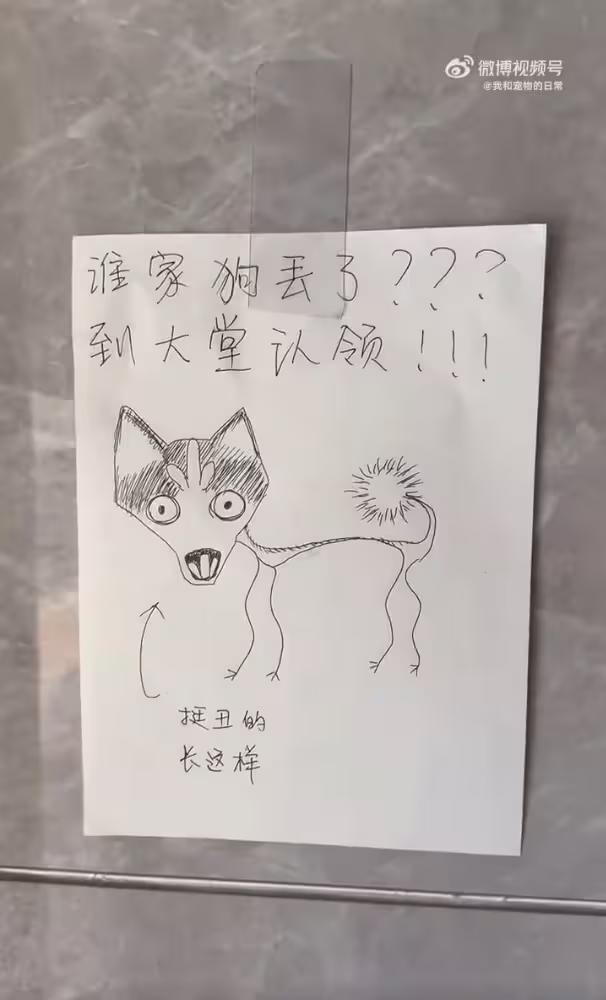 微博视频号
@我和宠物的日常
谁家狗丢了???
到大堂认领!!!
挺丑的
长这样